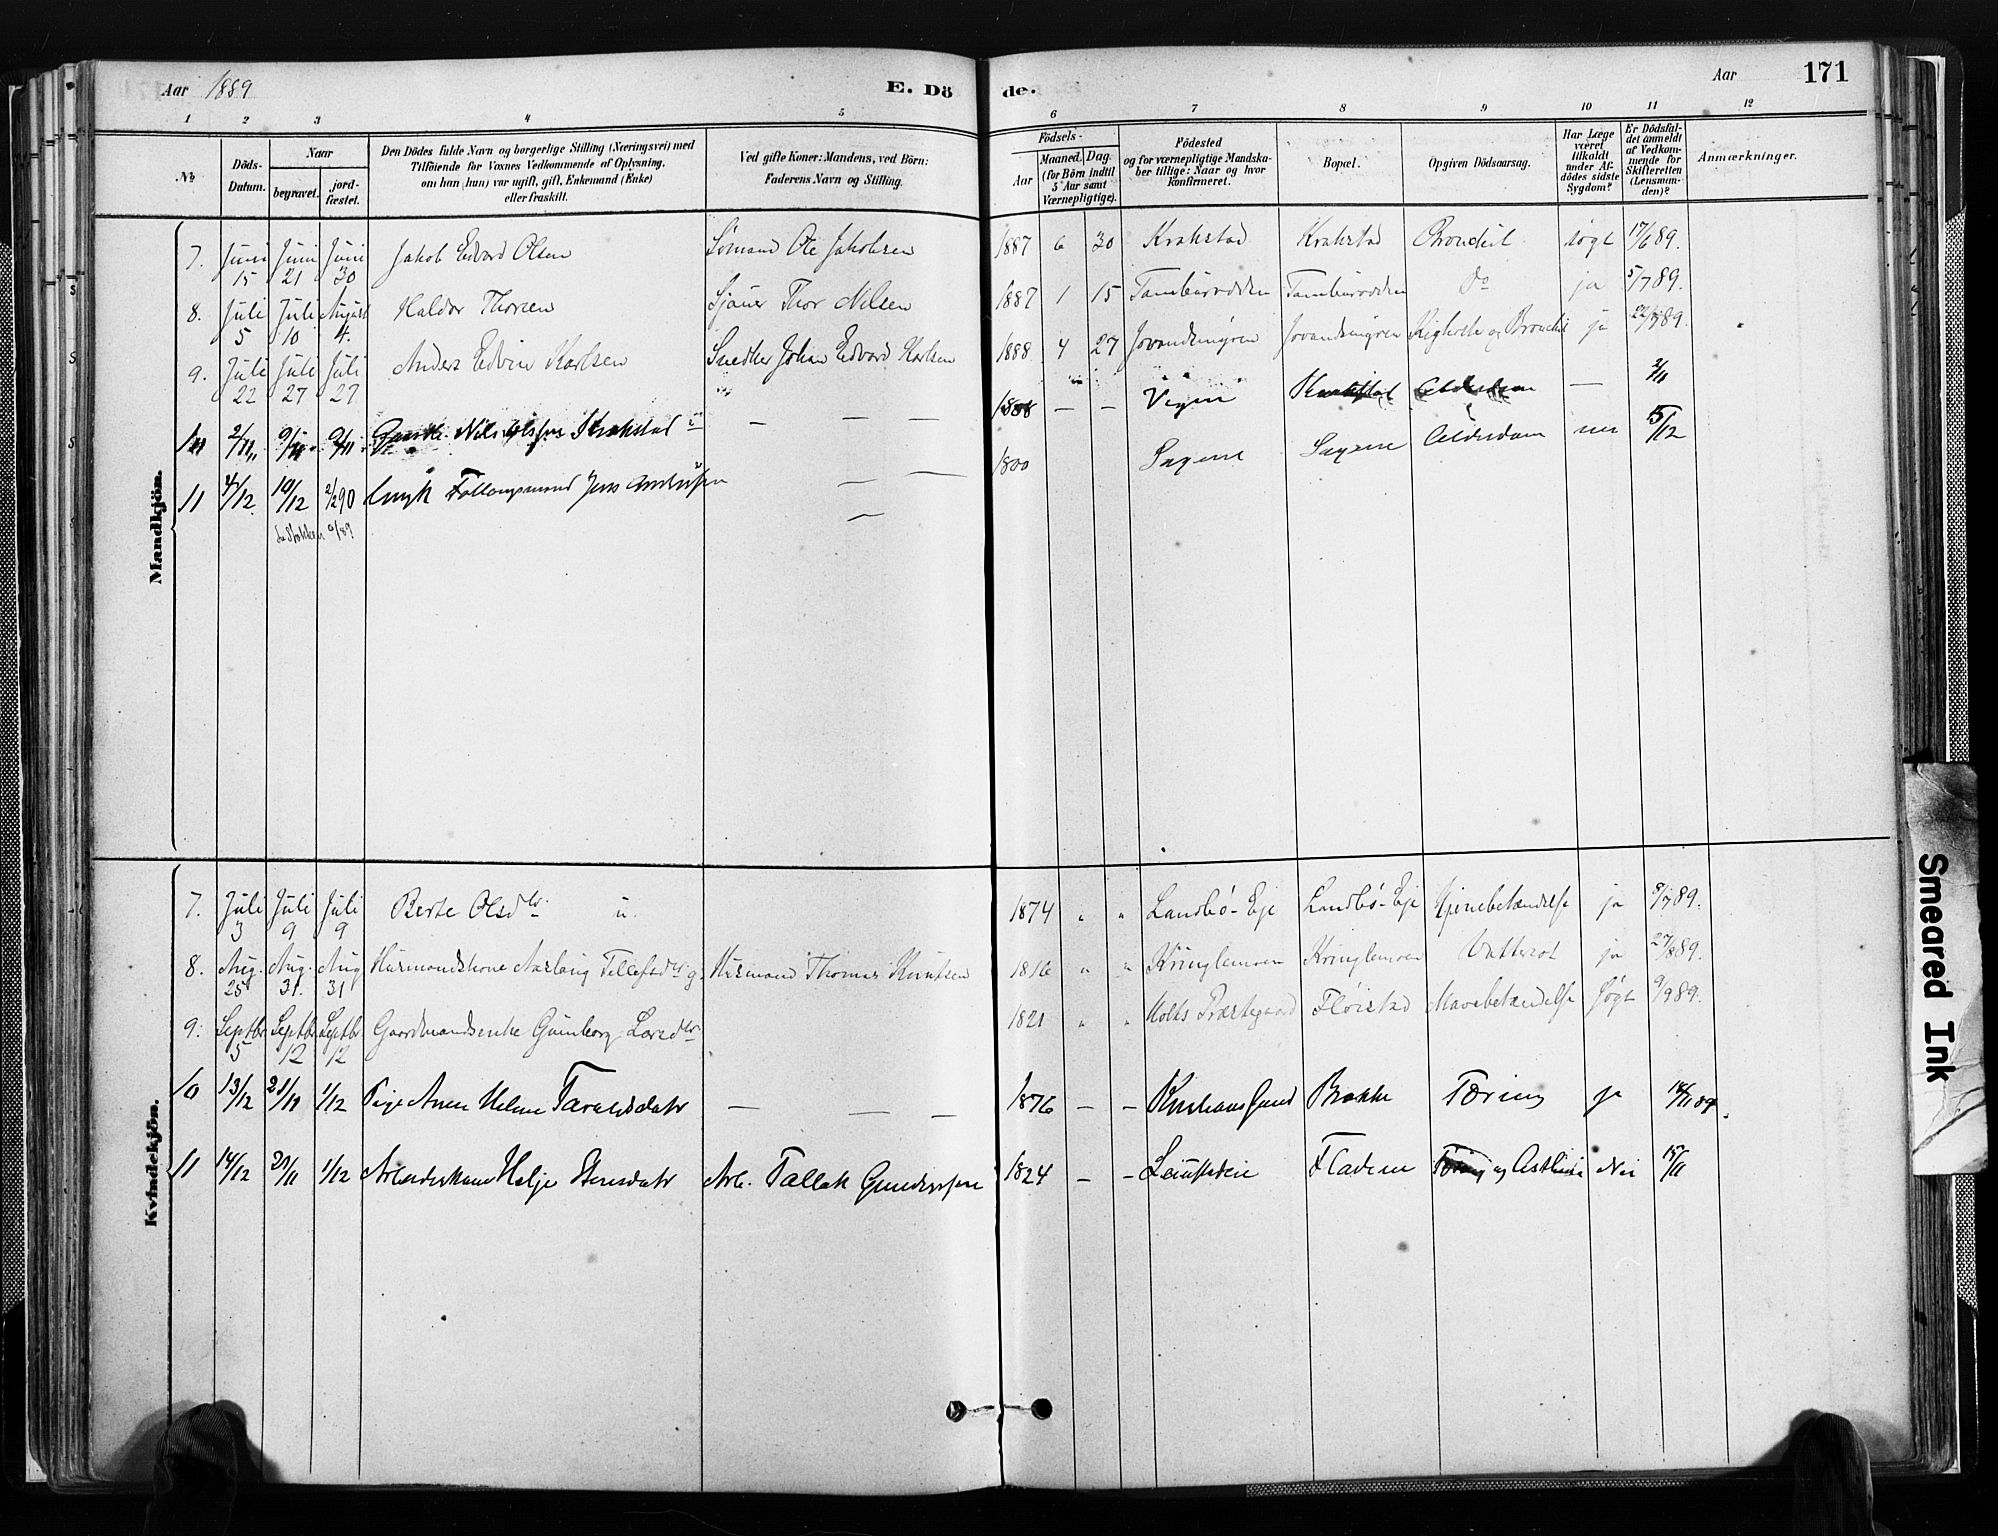 Aar 1889 E. Dö de. Aar 171
1 2 3 4 5 6 7 8 9 10 11 12
№ Döds-Datum. Naar begravet. jord-fæstet. Den Dödes fulde Navn og borgerlige Stilling (Næringsvei) med Tilföiende for Voxnes Vedkommende af Oplysning, om han (hun) var ugift, gift, Enkemand (Enke) eller fraskilt. Ved gifte Koner: Mandens, ved Börn: Faderens Navn og Stilling. Födsels- Aar Maaned. Dag. (for Börn indtil 5 Aar samt Værnepligtige). Födested og for værnepligtige Mandskaber tillige: Naar og hvor konfirmeret. Bopæl. Opgiven Dödsaarsag. Har Læge været tilkaldt under Afdödes sidste Sygdom? Er Dödsfaldet anmeldt af Vedkommende for Skifteretten (Lensmanden)? Anmærkninger.
Mandkjön.
7. Juni 15 Juni 21 Juni 30 Jakob Edvard Olsen Sømand Ole Jakobsen 1887 6 30 Krakstad Krakstad Bronchit søgt 17/6 89.
8. Juli 5 Juli 10 August 4. Haldor Thorsen Sjauer Thor Nilsen 1887 1 15 Tamburodden Tamburodden Do ja 5/7 89.
9. Juli 22 Juli 27 Juli 27 Anders Edvin Karlsen Snedker Johan Edvard Karlsen 1888 4 27 Jovandsmyren Jovandsmyren Kighoste og Bronchit ja 22/7 89.
2/11 9/11 9/11 Nils Krakstad — — — — — Vigni — 2/11
11 4/12 10/12 2/2 90 Jens — — 1800 Sagene Sagene Alderdom nei 5/12
Kvindekjön.
7. Juli 3 Juli 9 Juli 9 Berte Olsdtr. u. 1874 " " Landbö-Eje Landbö-Eje Hjernebetændelse ja 8/7 89.
8. Aug. 25 Aug. 31. Aug 31 Husmandskone Aaslaug Tellefsdtr g. Husmand Thomas Knutsen 1816 " " Kringlemoen Kringlemoen Vattersot ja 27/8 89.
9. Septbr 5 Septbr 12 Septbr 12 Gaardmandsenke Gunborg Larsdtr 1821 " " Holts Præstegaard Fløistad Mavebetændelse søgt 9/9 89.
10 13/12 21/11 1/12 Pige Anne Helene Taraldsdatr — — — 1876 — — Brække Tæring ja 14/11 89.
11 14/12 20/11 1/12 Arbeiderkone Helje Arb. Tallak Gundersen 1824 — — Fladem og Asthma Nei 15/11
Smeared Ink